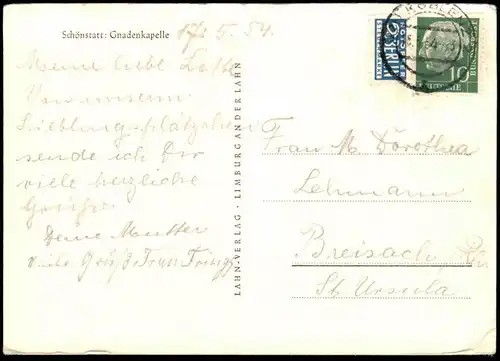 Schönstatt: Gnadenkapelle
17. 5. 54.
Meine liebe
Von unserm
Lieblingsplätzchen
sende ich Dir
viele herzliche
Grüße
Deine Mutter
viele
LAHN-VERLAG · LIMBURG AN DER LAHN
NOTOPFER
2 BERLIN
STEUERMARKE
10
DEUTSCHE BUNDESPOST
Frau M. Dorothea
Lehmann
Breisach
St. Ursula